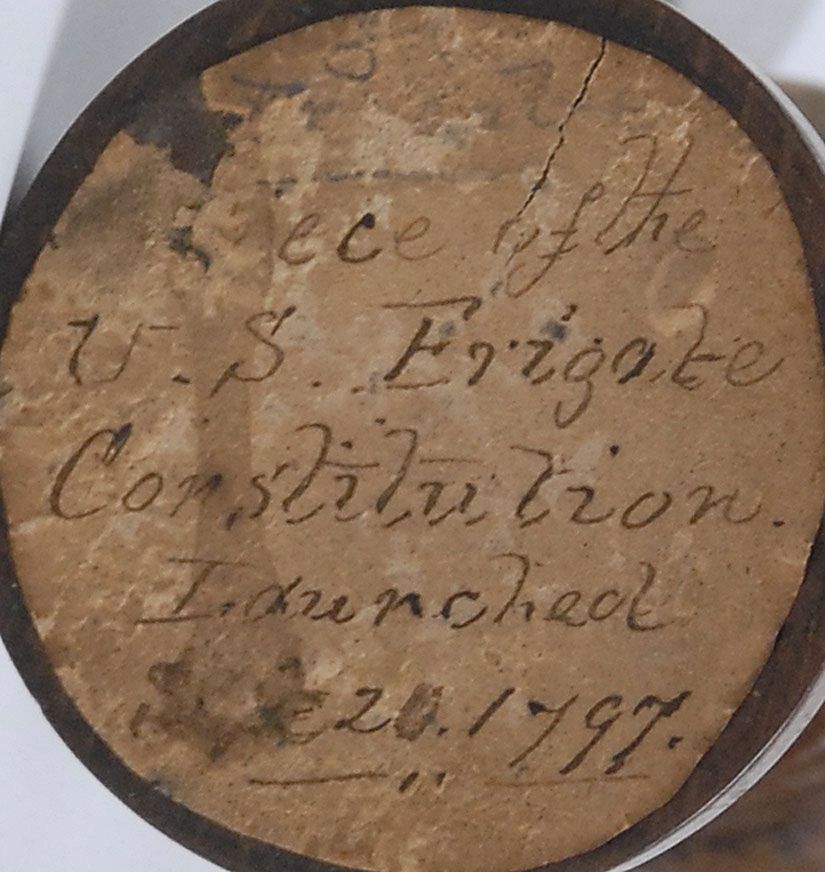 ece of the
U. S. Frigate
Constitution.
Launched
1797.